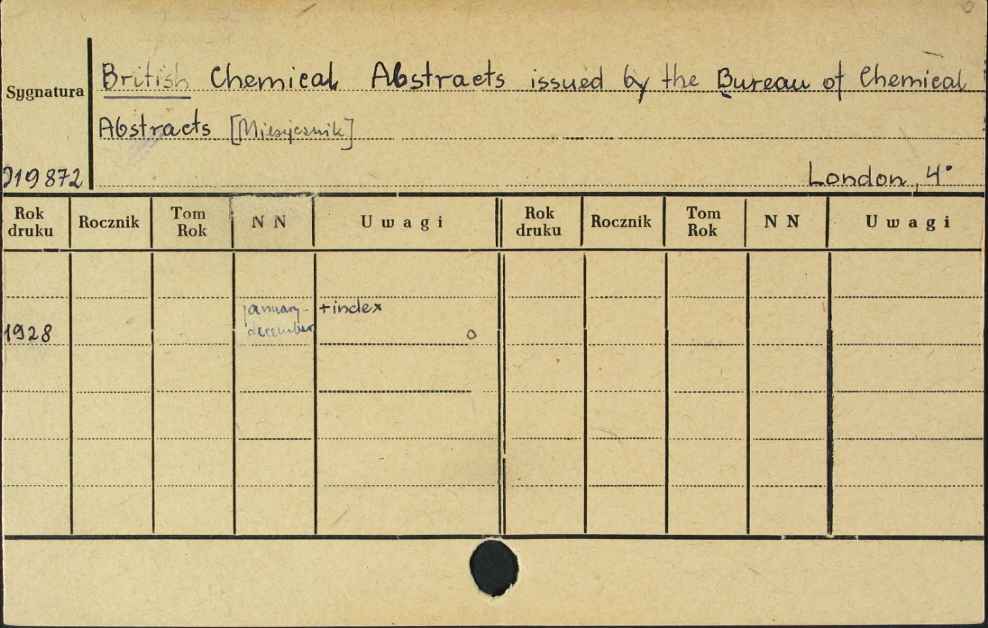 Sygnatura
British Chemical Abstracts issued by the Bureau of Chemical
Abstracts [Miesięcznik]
919872
London, 4°
Rok druku Rocznik Tom Rok N N Uwagi Rok druku Rocznik Tom Rok N N Uwagi
january- +index
1928 december o